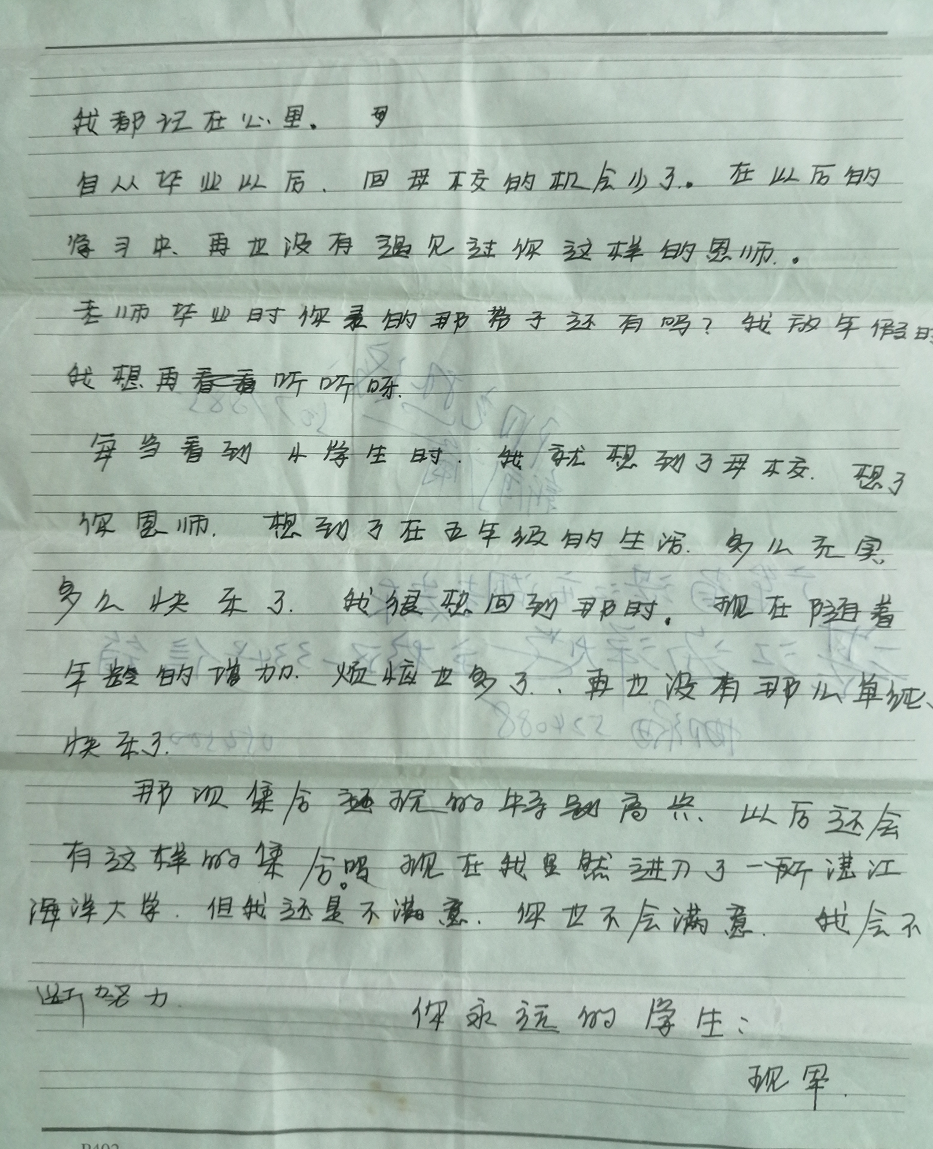 我都记在心里。
自从毕业以后、回母校的机会少了。在以后的
学习中、再也没有遇见过你这样的恩师。
老师毕业时你录的那带子还有吗？我放年假时
我想再听听呀.
每当看到小学生时.我就想到了母校.想了
你恩师.想到了在五年级的生活.多么充实
多么快乐了.我很想回到那时。现在随着
年龄的增加.烦恼也多了.、再也没有那么单纯、
快乐了.
那次集合还玩的特别高兴、以后还会
有这样的集合吗。现在我虽然进了一所湛江
海洋大学.但我还是不满意.你也不会满意.我会不
断努力.
你永远的学生：
现军.
P402